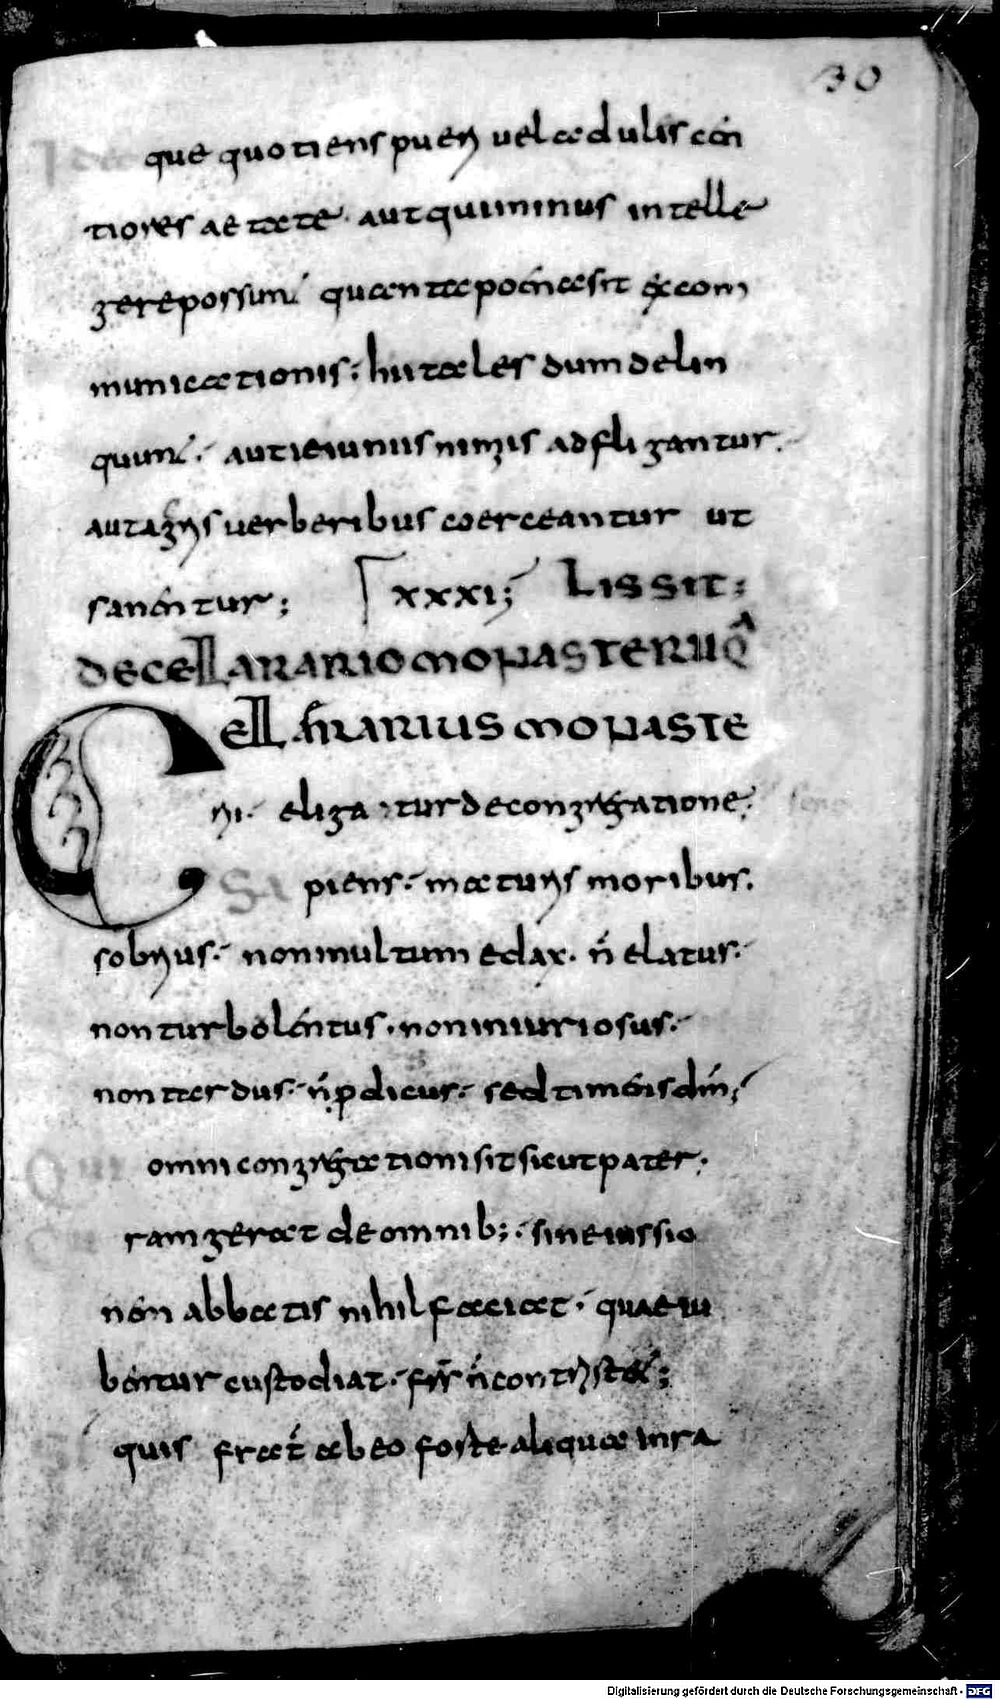 30
Ide
que quotiens pueri uel adulescen
tiores aetate· aut qui minus intelle
gere possunt quanta poena sit excom
municationis· hii tales dum delin
quunt· aut ieiuniis nimiis adfligantur·
aut acris uerberibus coerceantur ut
sanentur; XXXI; LIS SIT;
DE CELLARARIO MONASTERII QUA
CELLARARIUS MONASTE
rii· eligatur de congregatione·
Sapiens· maturis moribus·
sobrius· non multum edax· n̄ elatus·
non turbolentus· non iniuriosus·
non tardus· n̄ prodicus· sed timens dm̄;
omni congregationi sit sicut pater·
ram gerat de omnib;· sine iussio
nen abbatis nihil faciat· quae iu
bentur custodiat· frr̄ n̄ contristet;
quis frat̄ ab eo forte aliqua inra